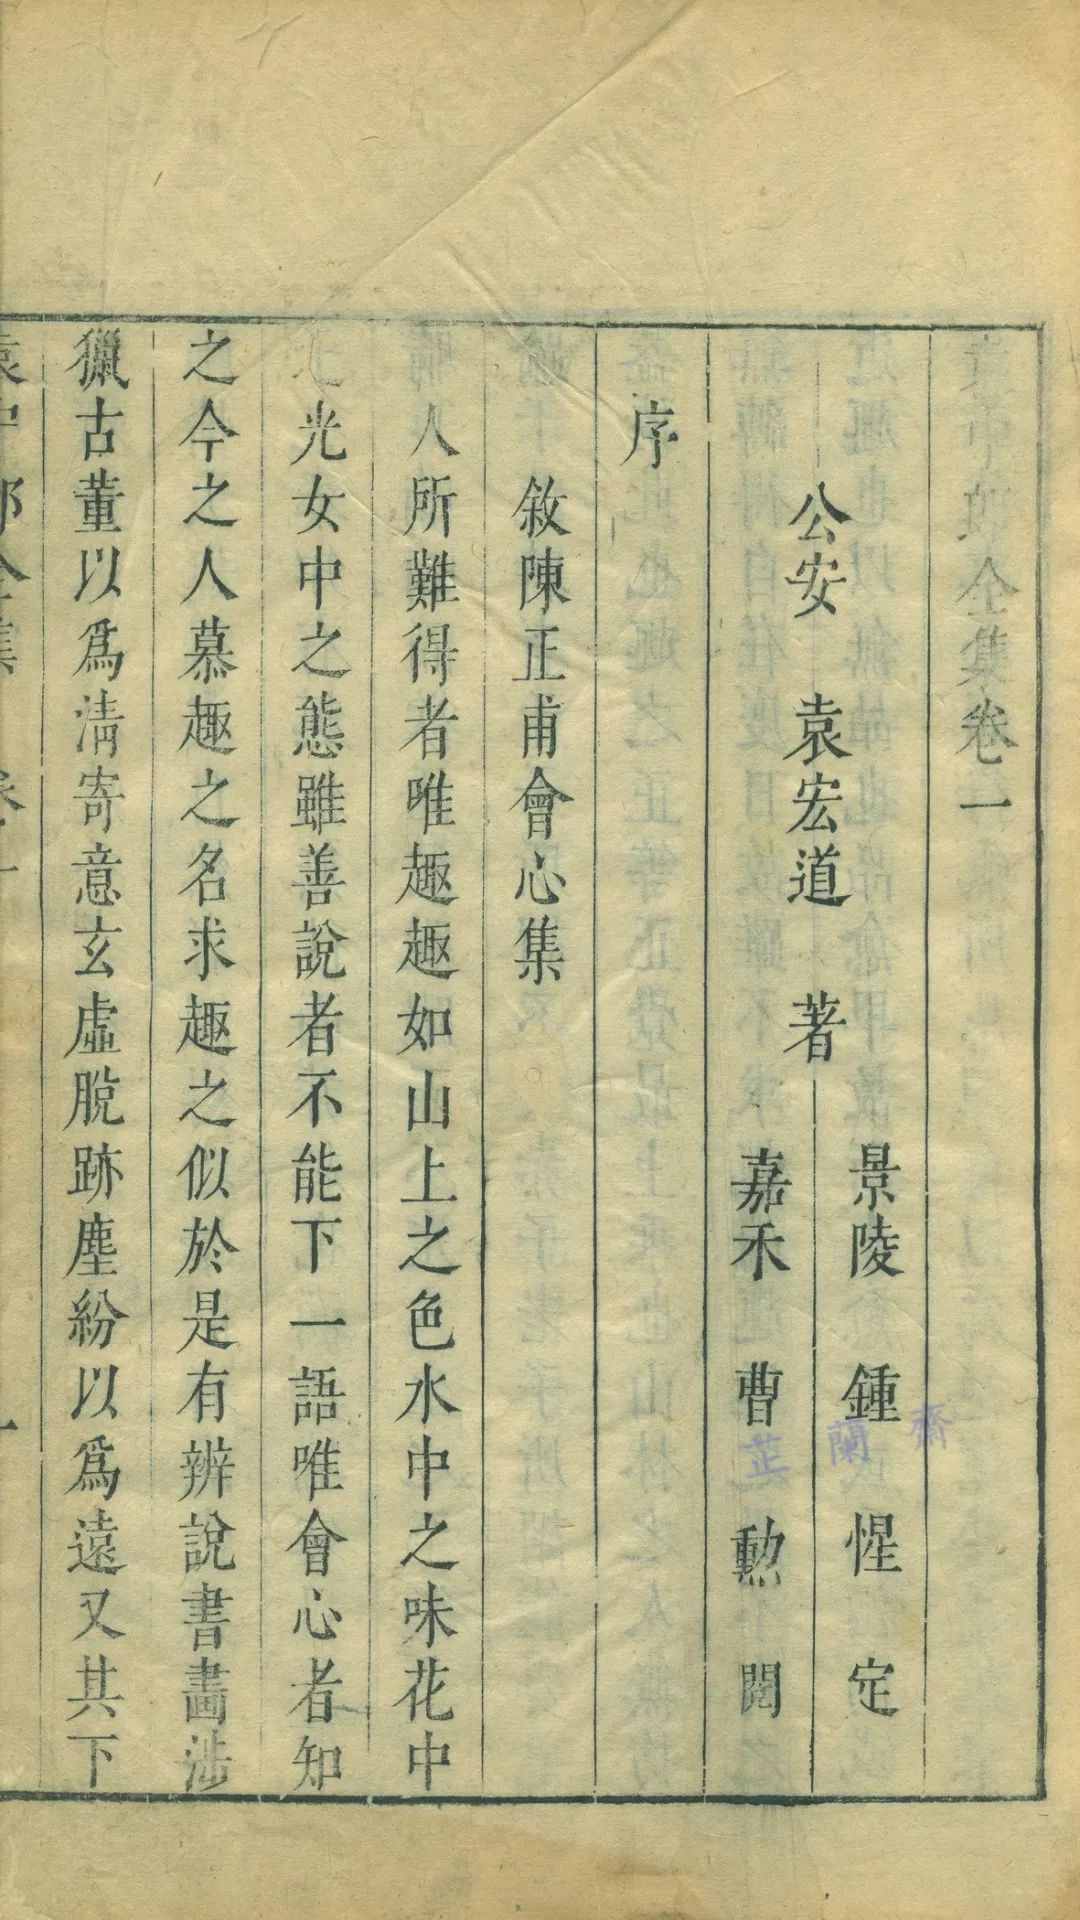 全集卷一
公安 袁宏道 著
景陵 鍾惺 定
嘉禾 曹勳 閱
序
敘陳正甫會心集
人所難得者唯趣趣如山上之色水中之味花中
光女中之態雖善說者不能下一語唯會心者知
之今之人慕趣之名求趣之似於是有辨說書畵涉
獵古董以爲淸寄意玄虛脫跡塵紛以爲遠又其下
袁中郎全集 卷一 一
芷蘭齋